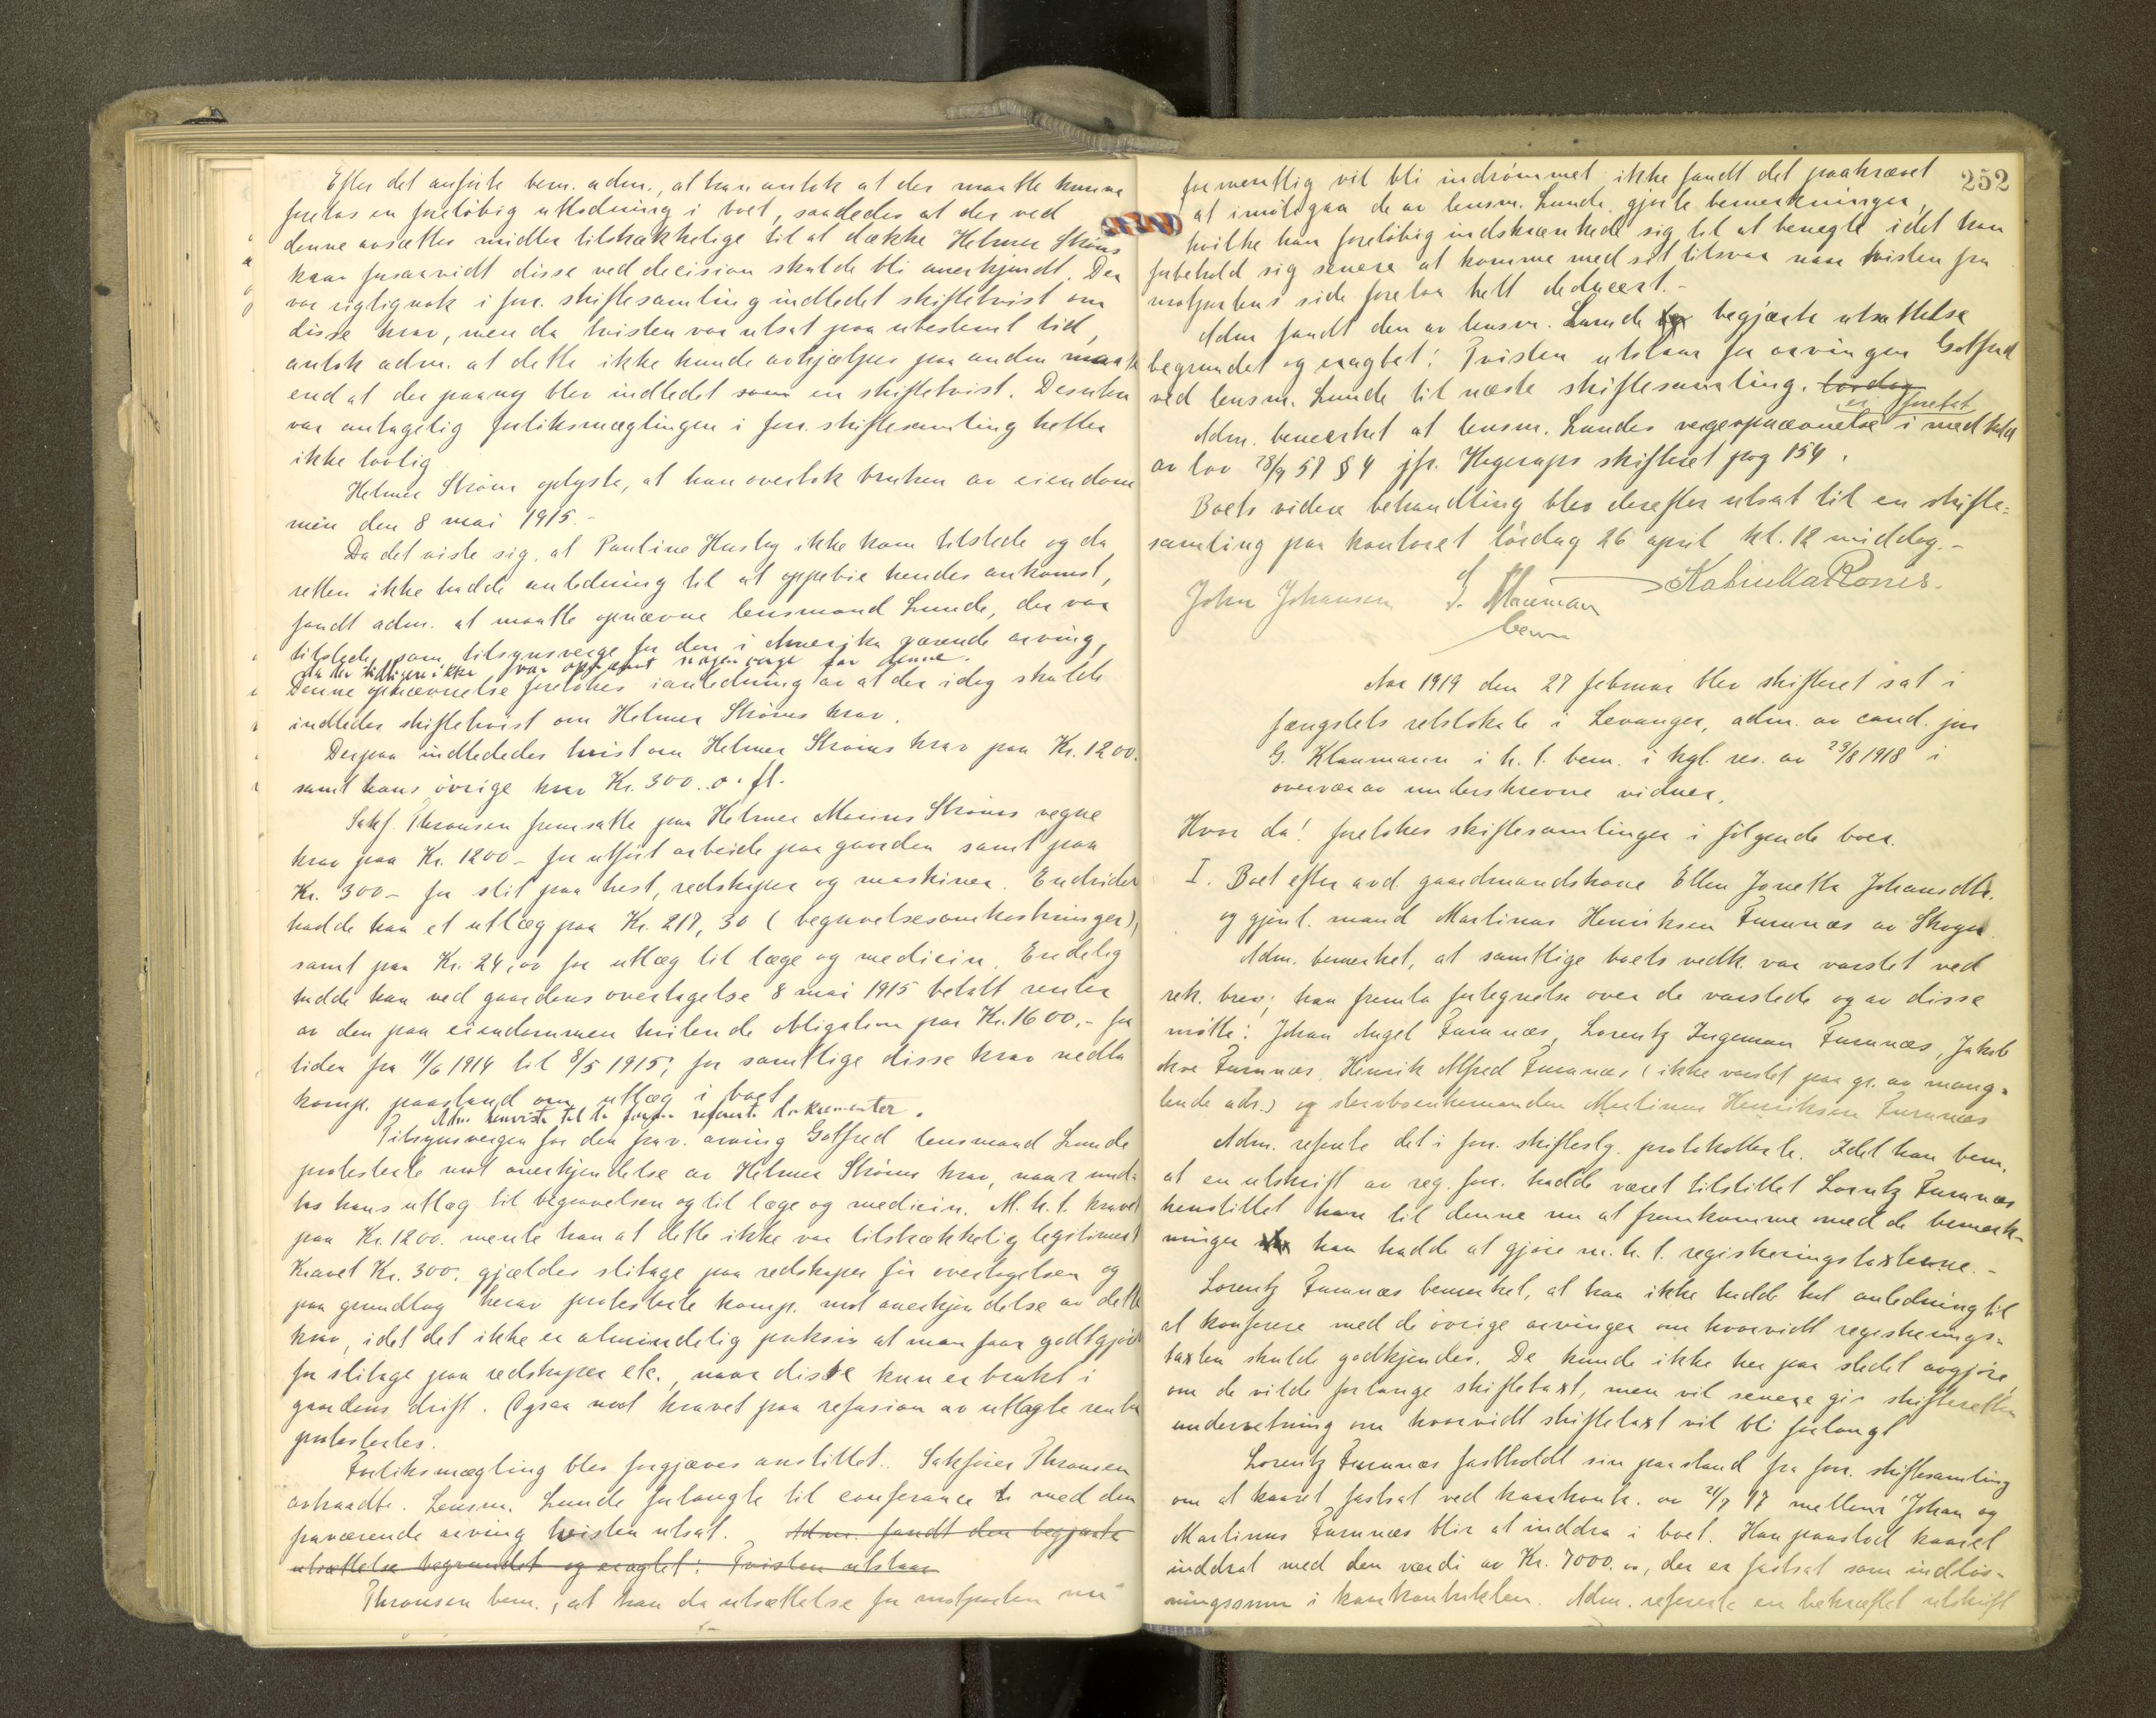 Efter det anførte bem. adm., at han antok at der maatte kunne
foretas en foreløbig utlodning i boet, saaledes at der ved
denne avsættes midler tilstrækkelige til at dække Helmer Strøms
krav forsaavidt disse ved decision skulde bli anerkjendt. Der
var rigtignok i forr. skiftesamling indledet skiftetvist om
disse krav, men da tvisten var utsat paa ubestemt tid,
antok adm. at dette ikke kunde avhjælpes paa anden maate
end at der paany blev indledet som en skiftetvist. Desuten
var antagelig forliksmæglingen i forr. skiftesamling heller
ikke lovlig
Helmer Strøm oplyste, at han overtok bruken av eiendom
men den 8 mai 1915.-
Da det viste sig, at Pauline Husby ikke kom tilstede og da
retten ikke hadde anledning til at oppebie hendes ankomst,
fandt adm. at maatte opnævne lensmand Lunde, der var
tilstede, som tilsynsverge for den i Amerika værende arving,
da der tidligere ikke var opnævnt nogen verge for denne.
Denne opnævnelse foretokes i anledning av at der idag skulde
indledes skiftetvist om Helmer Strøms krav.
Derpaa indlededes tvist om Helmer Strøms krav paa Kr. 1200.
samt hans øvrige krav Kr. 300.. o. fl.
Sakf. Thronsen fremsatte paa Helmer Marius Strøms vegne
krav paa Kr. 1200 - for utført arbeide paa gaarden samt paa
Kr. 300 - for slit paa hest, redskaper og maskiner. Endvider
hadde han et utlæg paa Kr. 217,30 (begravelsesomkostninger),
samt paa Kr. 24,00 for utlæg til læge og medicin. Endelig
hadde han ved gaardens overtagelse 8 mai 1915 betalt renter
av den paa eiendommen hvilende obligation paa Kr. 1600.- for
tiden fra 11/6 1914 til 8/5 1915; for samtlige disse krav nedla
komp. paastand om utlæg i boet
Adm. henviste til de forhen refererte dokumenter.
Tilsynsvergen for den frav. arving Gotfred lensmand Lunde
protesterte mot anerkjendelse av Helmer Strøms krav, naar und-
tas hans utlæg til begravelsen og til læge og medicin. M. h. t. kravet
paa Kr. 1200. mente han at dette ikke var tilstrækkelig legitimert
Kravet Kr. 300. gjælder slitage paa redskaper før overtagelsen og
paa grundlag herav protesterte komp. mot anerkjendelse av dette
krav, idet det ikke er almindelig praksis at man faar godtgjort
for slitage paa redskaper etc., naar disse kun er brukt i
gaardens drift. Ogsaa mot kravet paa refusion av utlagte renter
protestertes.
Forliksmægling blev forgjæves anstillet. Sakfører Thronsen
avtraadte. Lensm. Lunde forlangte til conferance med den
fraværende arving tvisten utsat. Adm. fandt den begjærte
utsættelse begrundet og eragtet: Tvisten utstaar
Thronsen bem., at han da utsættelse for motparten nu
252
formentlig vil bli indrømmet ikke fandt det paakrævet
at imøtegaa de av lensm. Lunde gjorte bemerkninger,
hvilke han foreløbig indskrænkede sig til at benegte idet han
forbeholdt sig senere at komme med sit tilsvar naar tvisten fra
motpartens side forelaa helt deduceert.-
Adm fandt den av lensm. Lunde begjærte utsættelse
begrundet og eragtet: Tvisten utstaar for arvingen Gotfred
ved lensm. Lunde til næste skiftesamling. lørdag
er foretat
Adm. bemerket at lensm. Lundes vergeopnævnelse i medhold
av lov 28/9 57 § 4 jfr. Hagerups skifteret pag 154.
Boets videre behandling blev derefter utsat til en skifte-
samling paa kontoret lørdag 26 april kl. 12 middag.-
John Johansen G. Klaumann
Aar 1919 den 27 februar blev skifteret sat i
fængslets retslokale i Levanger, adm. av cand. jur
G. Klaumann i h. t. bem. i kgl. res. av 23/8 1918 i
overvær av underskrevne vidner.
Hvor da! foretokes skiftesamlinger i følgende boer.
I. Boet efter avd. gaardmandskone Ellen Jonetta Johansdtr.
og gjenl. mand Martinus Henriksen Furunæs av Skogn.
Adm. bemerket, at samtlige boets vedk. var varslet ved
rek. brev; han fremla fortegnelse over de varslede og av disse
møtte: Johan Angel Furunæs, Lorentz Ingeman Furunæs, Jakob
Furunæs, Henrik Alfred Furunæs (ikke varslet paa gr. av mang-
lende adr.) og Martinus Henriksen Furunæs
Adm. refererte det i forr. skiftesig. protokollerte. Idet han bem.
at en utskrift av reg. forr. hadde været tilstillet Lorentz Furunæs
henstillet han til denne nu at fremkomme med de bemerk-
ninger han hadde at gjøre m. h. t. registreringstaxterne.-
Lorentz Furunæs bemerket, at han ikke hadde hat anledning til
at konferere med de øvrige arvinger om hvorvidt registrerings-
taxten skulde godkjendes. De kunde ikke her paa stedet avgjøre,
om de vilde forlange skiftetaxt, men vil senere gi skifteretten
underretning om hvorvidt skiftetaxt vil bli forlangt
Lorentz Furunæs fastholdt sin paastand fra forr. skiftesamling
om at kaaret fastsat ved kaarkontr. av 21/7 17 mellem Johan og
Martinus Furunæs blir at inddra i boet. Han paastod kaaret
inddrat med den værdi av Kr. 7000.00, der er fastsat som indløs-
ningssum i kaarkontrakten. Adm. refererte en bekræftet utskrift